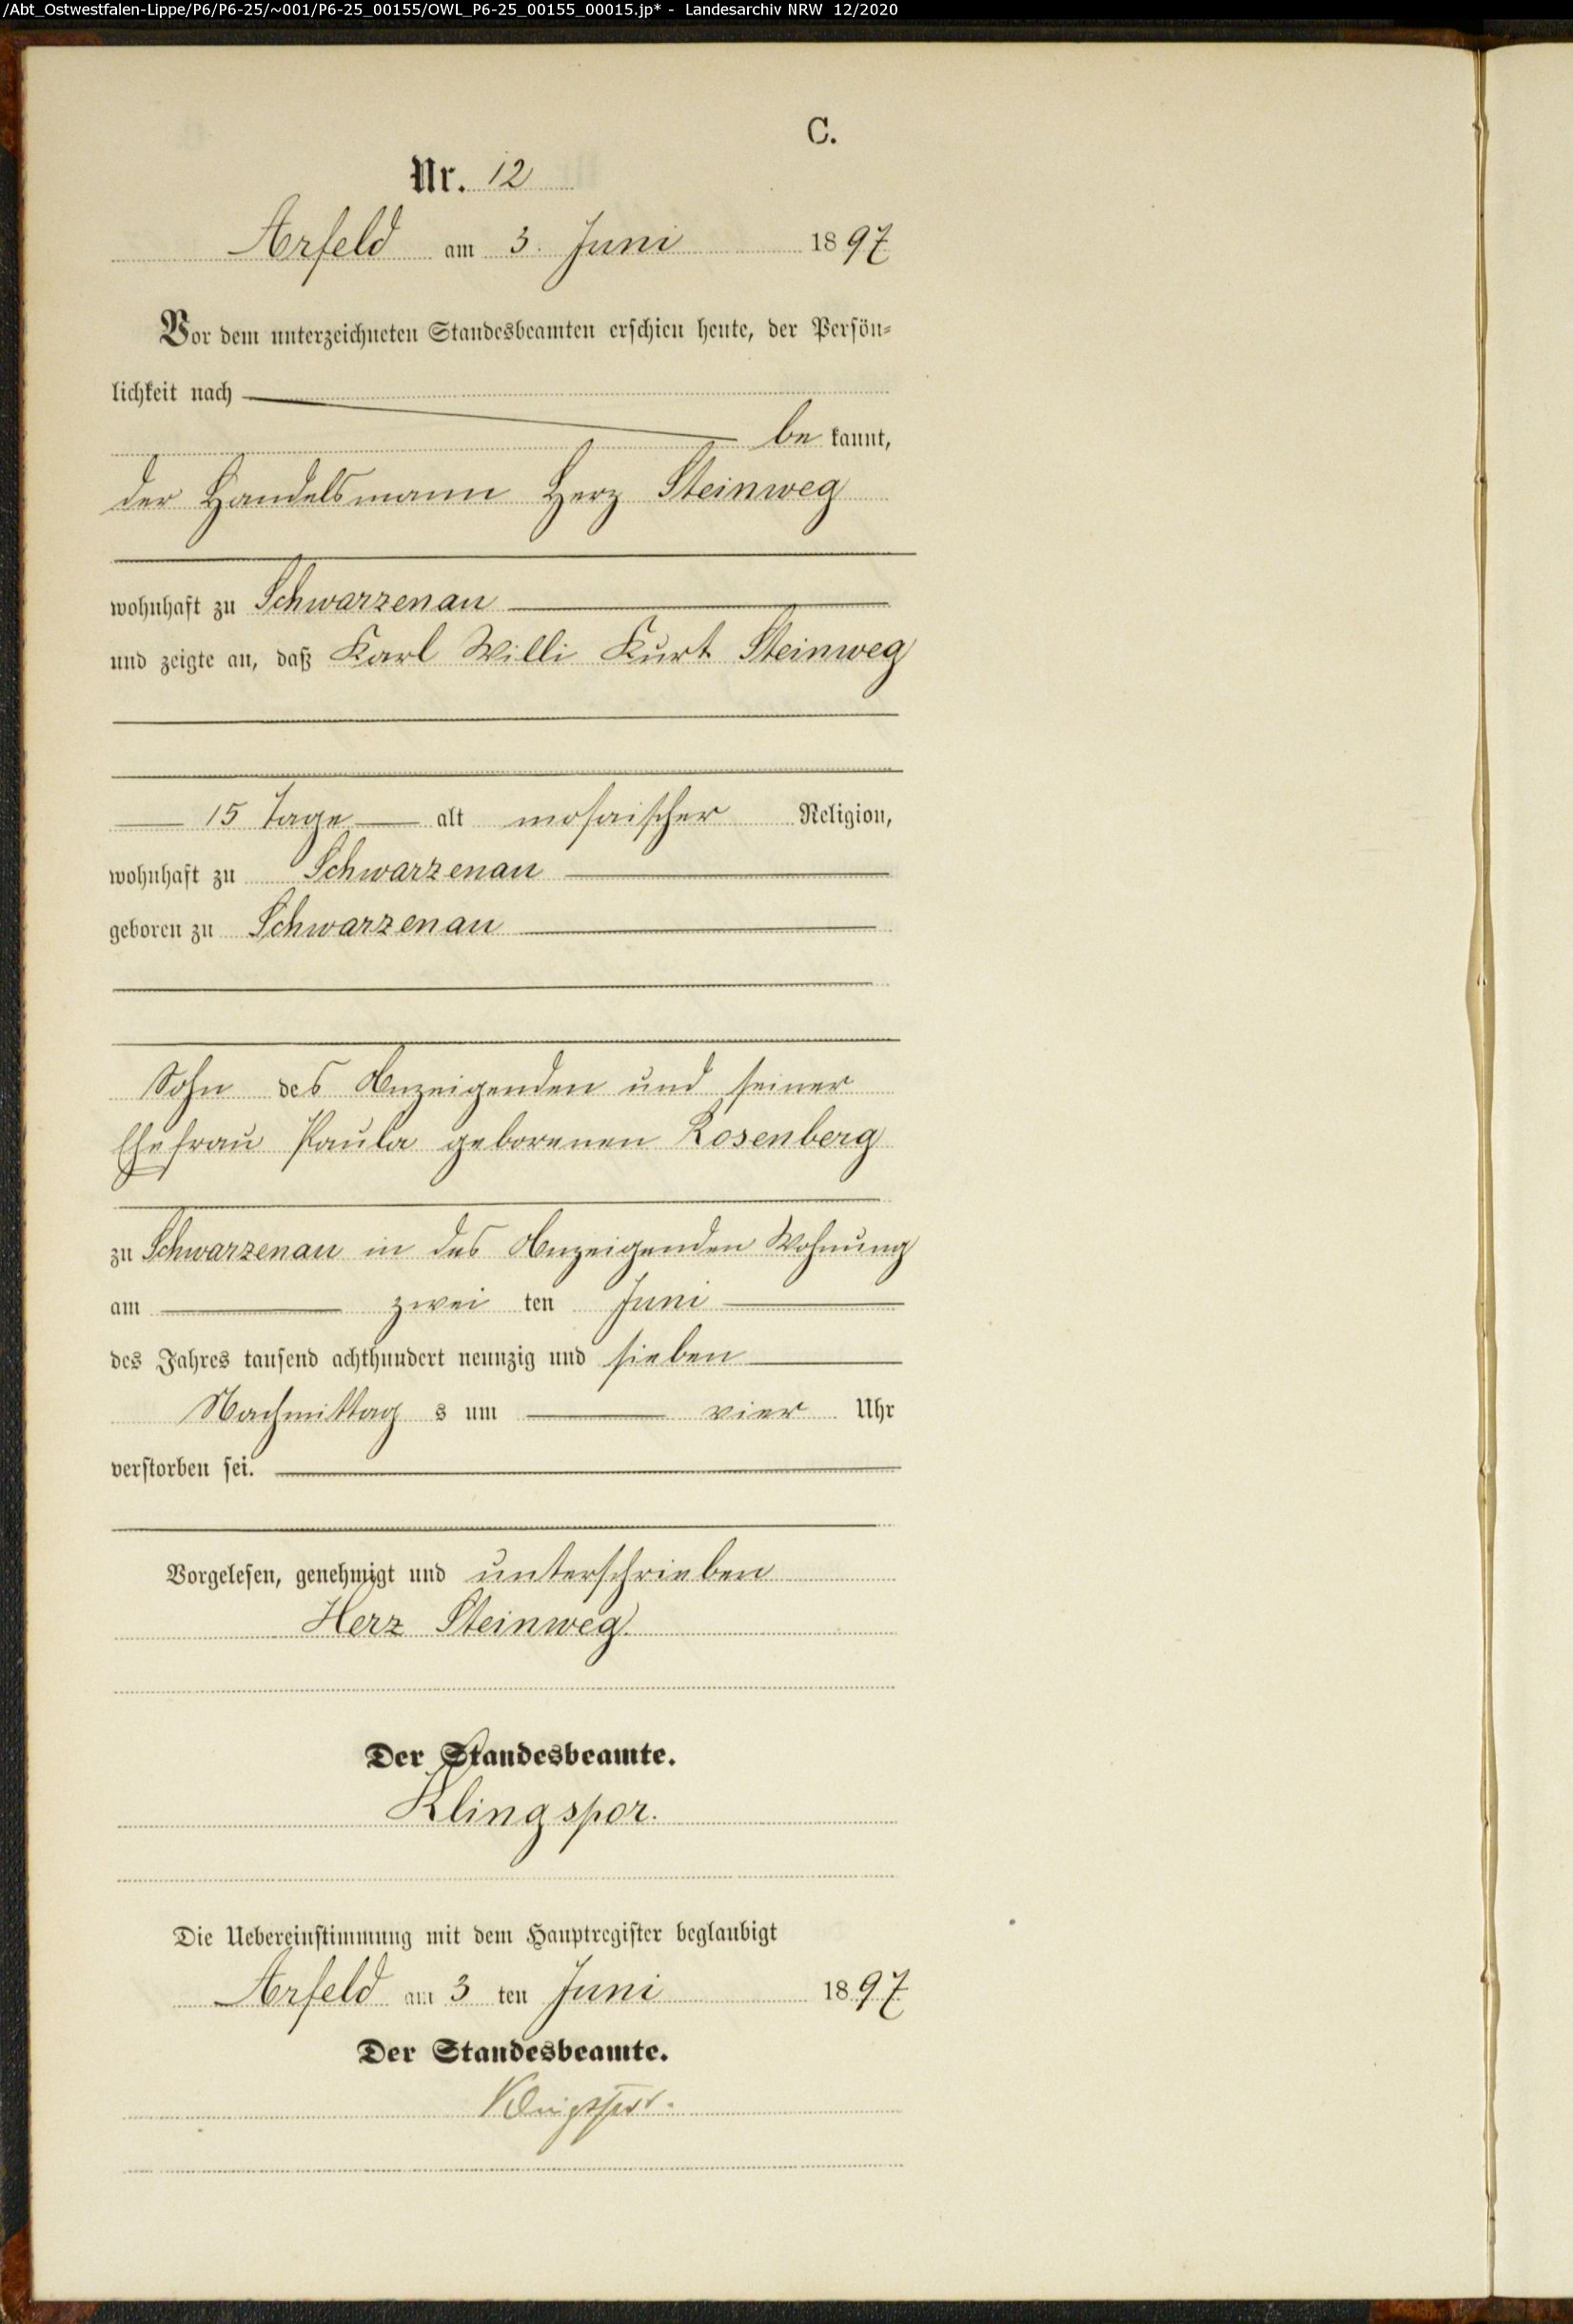 /Abt_Ostwestfalen-Lippe/P6/P6-25/~001/P6-25_00155/OWL_P6-25_00155_00015.jp* - Landesarchiv NRW 12/2020
C.
Nr. 12
Arfeld am 3. Juni 1897
Vor dem unterzeichneten Standesbeamten erschien heute, der Persön-
lichkeit nach
be kannt,
der Handelsmann Herz Steinweg
wohnhaft zu Schwarzenau
und zeigte an, daß Karl Willi Kurt Steinweg
15 Tage alt mosaischer Religion,
wohnhaft zu Schwarzenau
geboren zu Schwarzenau
Sohn des Anzeigenden und seiner
Ehefrau Paula geborenen Rosenberg
zu Schwarzenau in des Anzeigenden Wohnung
am zwei ten Juni
des Jahres tausend achthundert neunzig und sieben
Nachmittag s um vier Uhr
verstorben sei.
Vorgelesen, genehmigt und unterschrieben
Herz Steinweg.
Der Standesbeamte.
Klingspor.
Die Uebereinstimmung mit dem Hauptregister beglaubigt
Arfeld am 3 ten Juni 1897
Der Standesbeamte.
Klingspor.